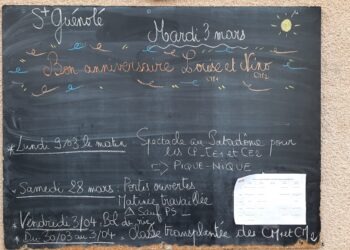 St Guénolé
Mardi 3 mars
Bon anniversaire Louise et Nino
CM1 CM2
* Lundi 9/03 le matin : Spectacle au Patadôme pour
les CP_CE1 et CE2
PIQUE-NIQUE
* Samedi 28 mars : Portes ouvertes
Matinée travaillée
⚠ Sauf PS
* Vendredi 3/04 Bol de riz
* Du 30/03 au 3/04 : Classe transplantée des CM1 et CM2